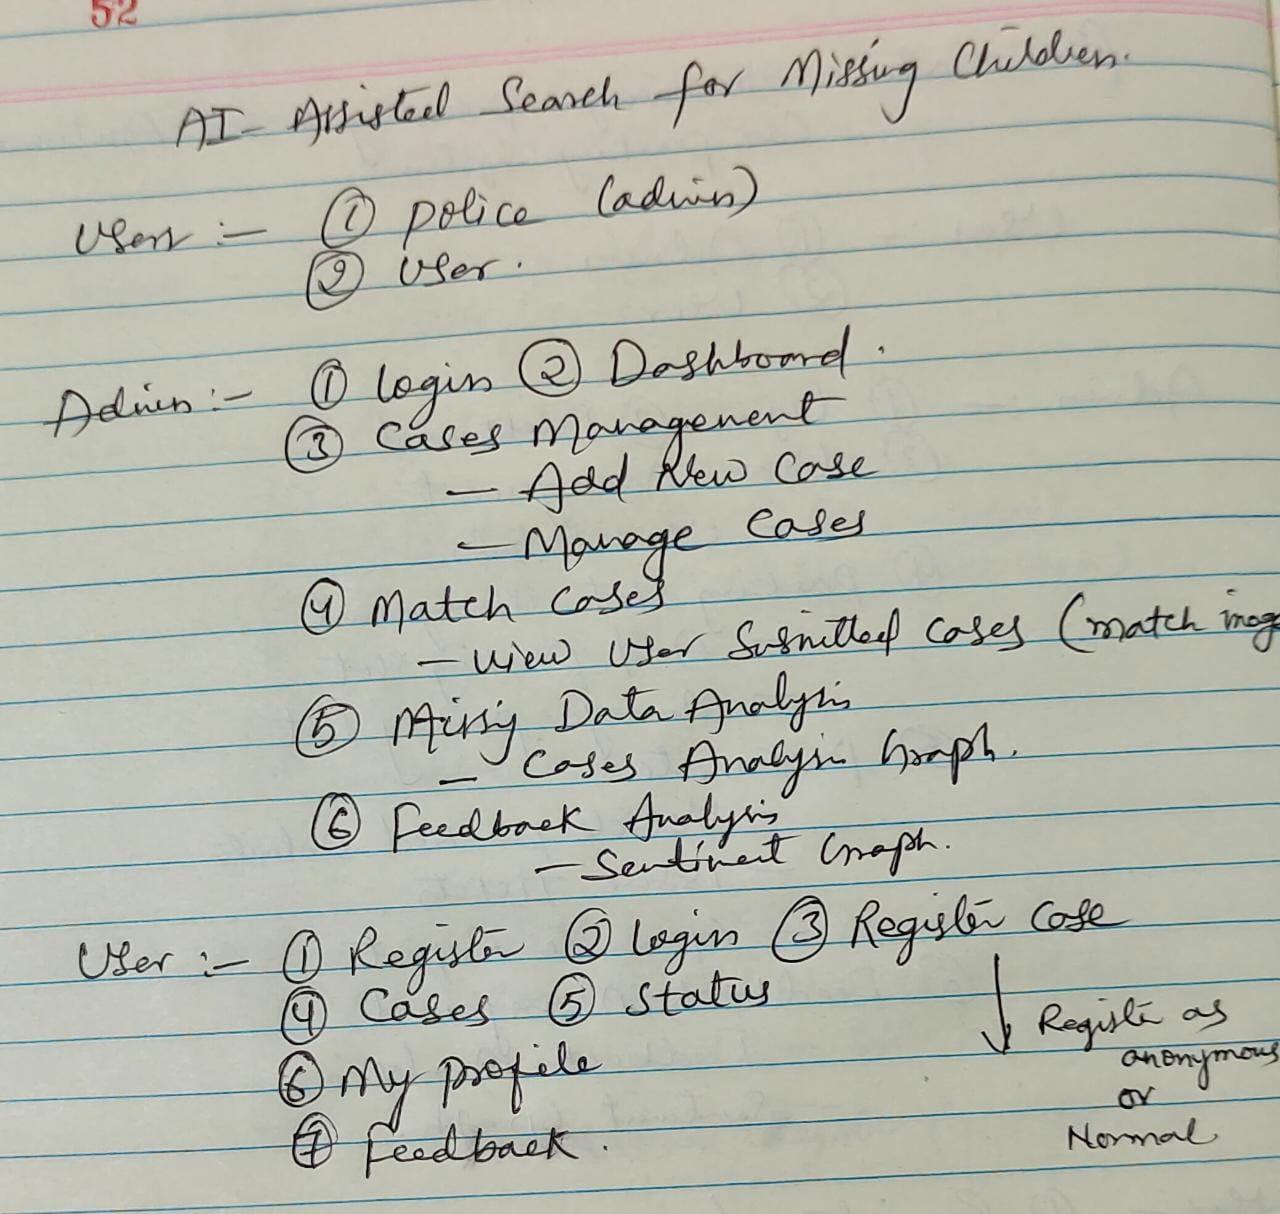 52
AI-Assisted Search for Missing Children.
Users :- ① police (admin)
② User.
Admin :- ① Login ② Dashboard.
③ Cases Management
- Add New Case
- Manage Cases
④ Match Cases
- View User Submitted Cases (match imag
⑤ Missing Data Analysis
- Cases Analysis Graph.
⑥ Feedback Analysis
- Sentiment Graph.
User :- ① Register ② Login ③ Register Case
④ Cases ⑤ Status
↓ Register as
anonymous
or
Normal
⑥ My profile
⑦ Feedback.